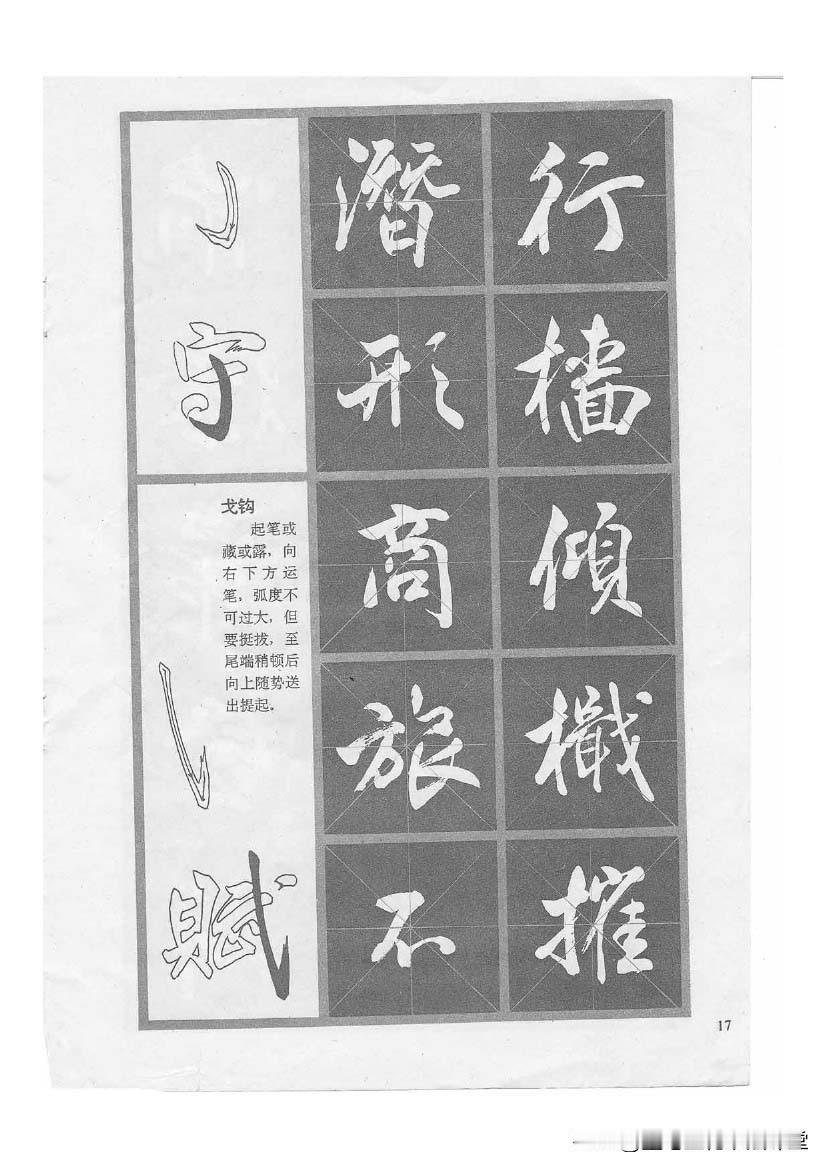 守
戈钩
起笔或
藏或露，向
右下方运
笔，弧度不
可过大，但
要挺拔，至
尾端稍顿后
向上随势送
出提起.
賦
潜形商旅不
行檣傾檝摧
17